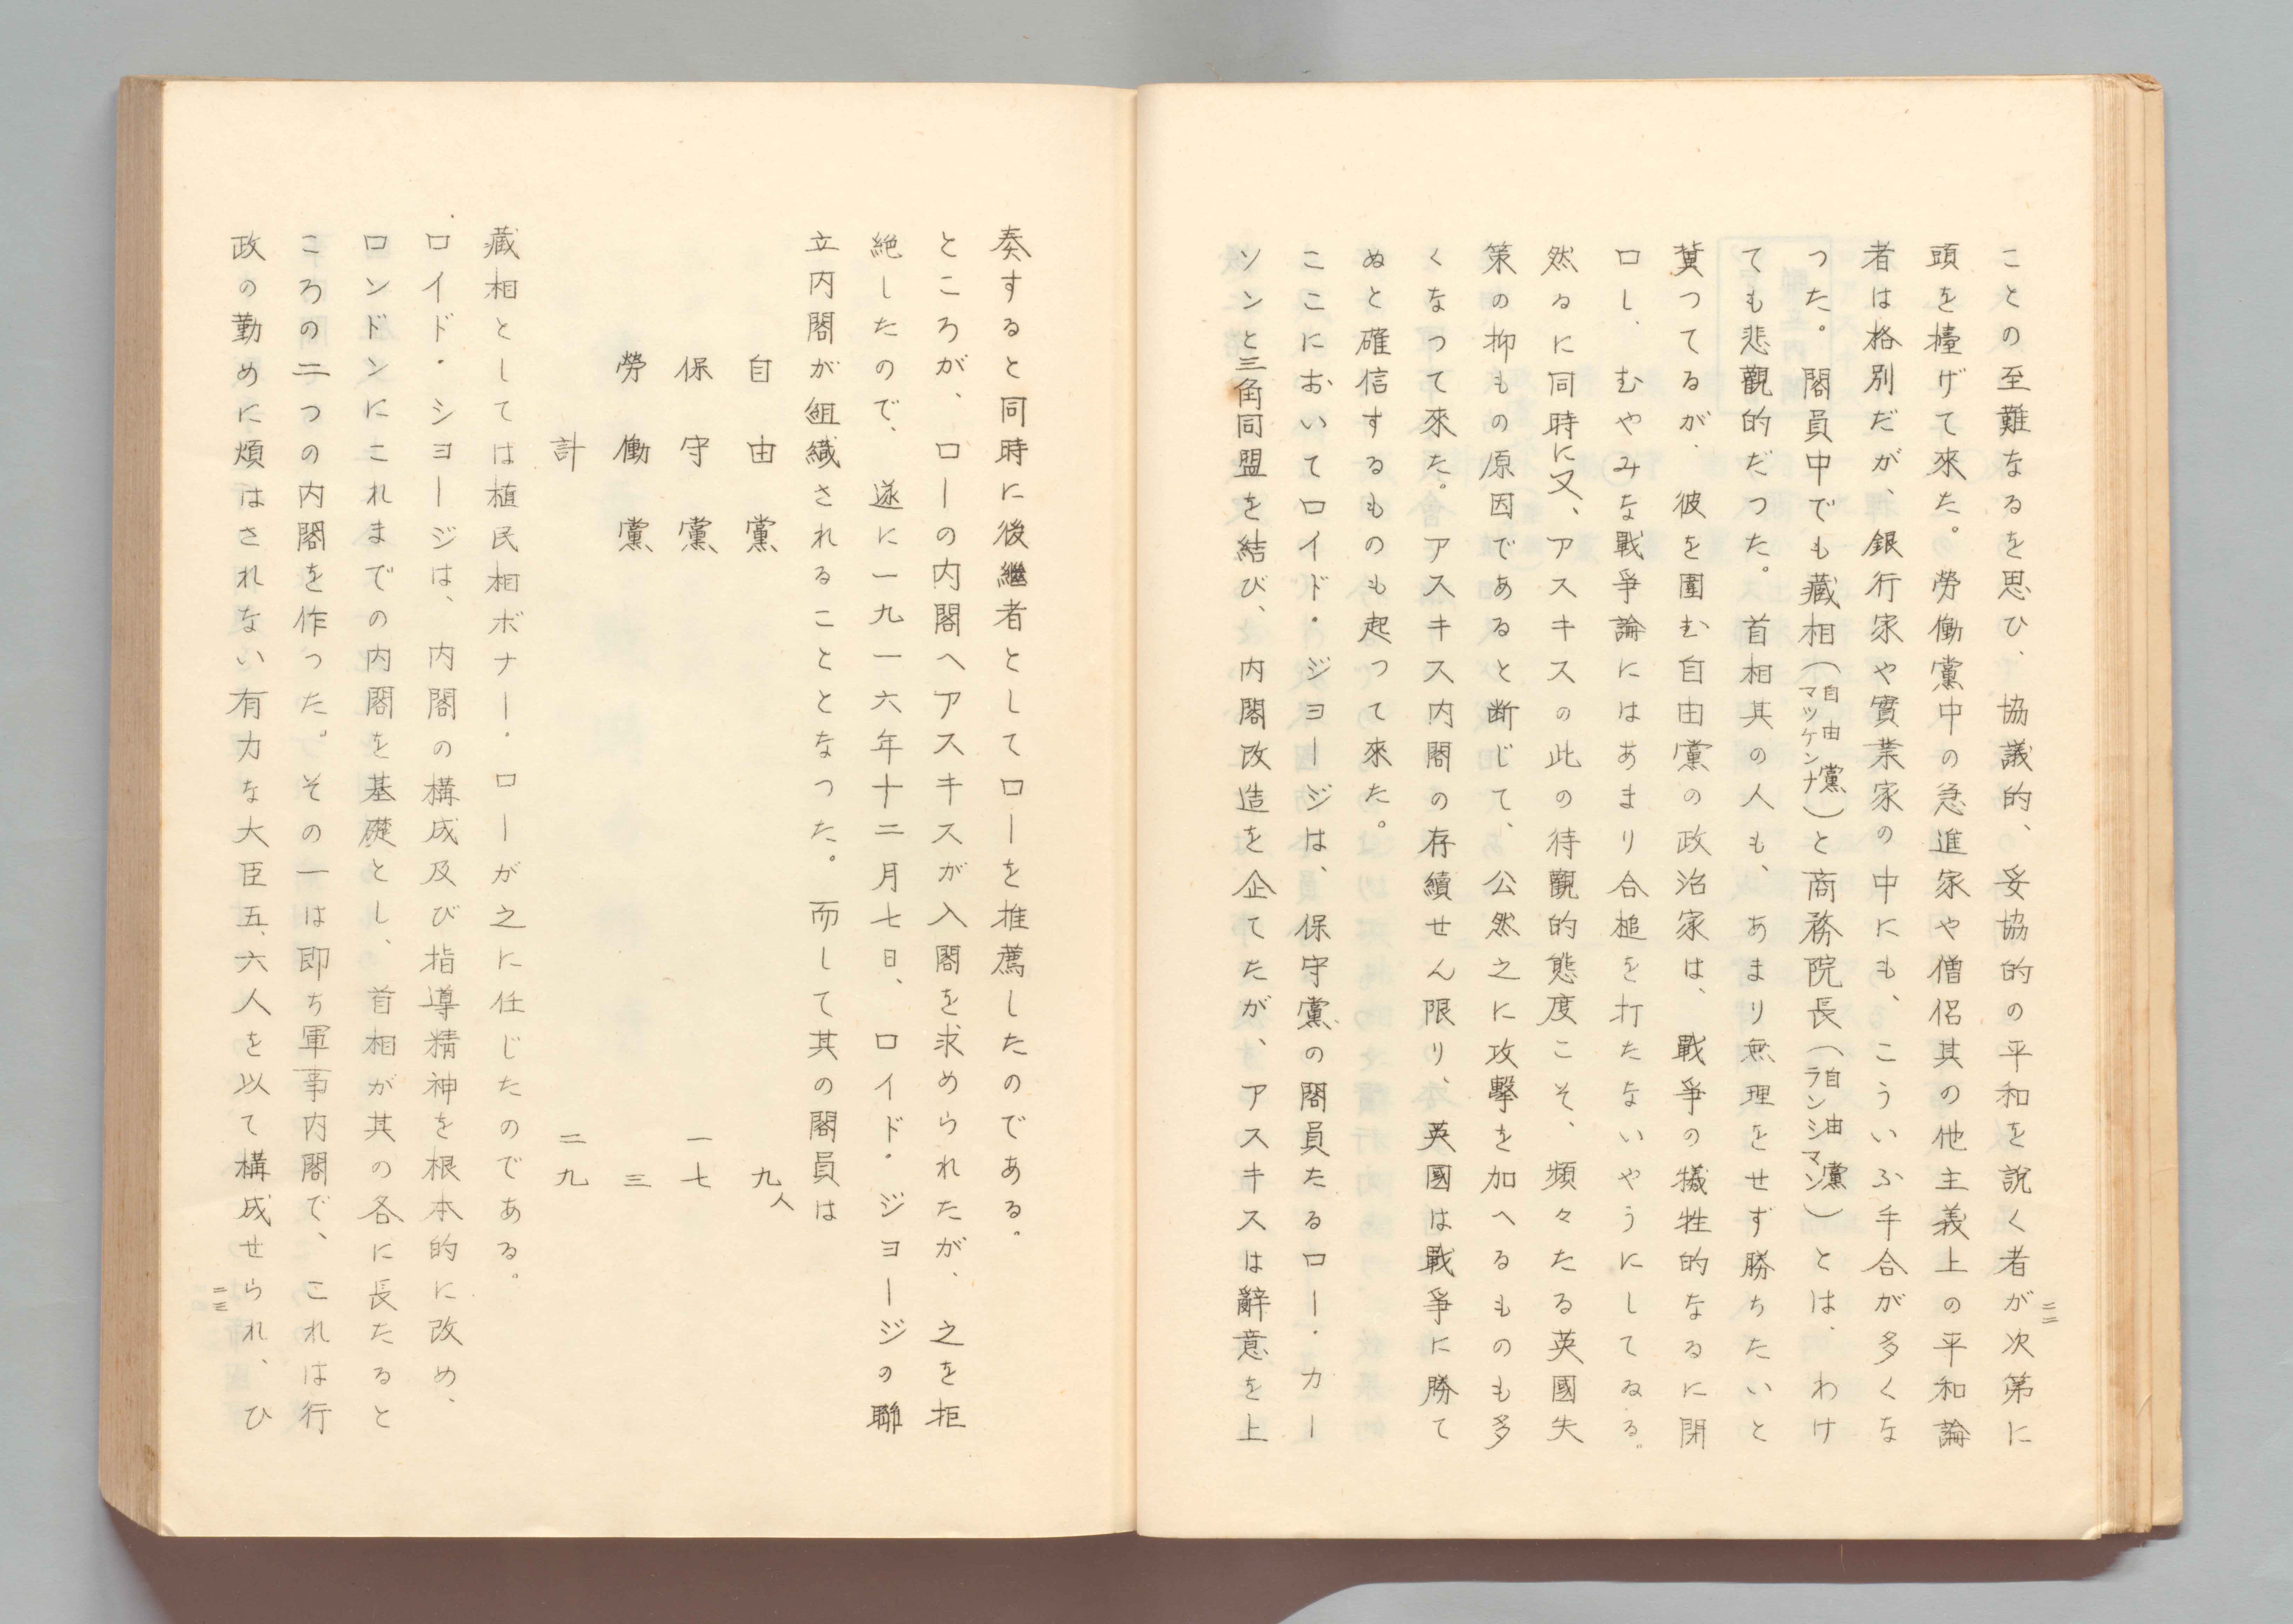 二二
ことの至難なるを思ひ、協議的、妥協的の平和を説く者が次第に
頭を擡げて來た。勞働黨中の急進家や僧侶其の他主義上の平和論
者は格別だが、銀行家や實業家の中にも、こういふ手合が多くな
つた。閣員中でも藏相（自由黨マツケンナ）と商務院長（自由黨ランシマン）とは、わけ
ても悲觀的だつた。首相其の人も、あまり無理をせず勝ちたいと
冀つてるが、彼を圍む自由黨の政治家は、戰爭の犠牲的なるに閉
口し、むやみな戰爭論にはあまり合槌を打たないやうにしてゐる。
然るに同時に又、アスキスの此の待觀的態度こそ、頻々たる英國失
策の抑もの原因であると断じて、公然之に攻擊を加へるものも多
くなつて來た。アスキス内閣の存續せん限り、英國は戰爭に勝て
ぬと確信するものも起つて來た。
ここにおいてロイド・ジヨージは、保守黨の閣員たるロー・カー
ソンと三角同盟を結び、内閣改造を企てたが、アスキスは辭意を上
奏すると同時に後繼者としてローを推薦したのである。
ところが、ローの内閣へアスキスが入閣を求められたが、之を拒
絶したので、遂に一九一六年十二月七日、ロイド・ジヨージの聯
立内閣が組織されることとなつた。而して其の閣員は
自由黨　九人
保守黨　一七
勞働黨　三
計　二九
藏相としては植民相ボナー・ローが之に任じたのである。
ロイド・シヨージは、内閣の構成及び指導精神を根本的に改め、
ロンドンにこれまでの内閣を基礎とし、首相が其の各に長たると
ころの二つの内閣を作つた。その一は即ち軍事内閣で、これは行
政の勤めに煩はされない有力な大臣五、六人を以て構成せられ、ひ
二三